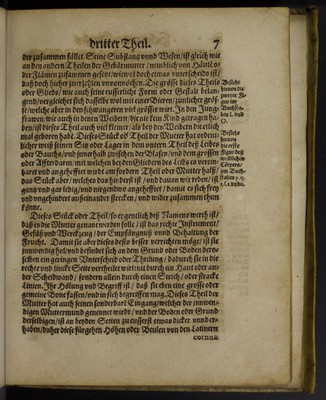 dritter Theil. 7
der zusammen füllet. Seine Substantz vnnd Wesen/ist gleich wie
an den andern Theilen der Gebärmutter/nemblich von Häutlein
der Flämen zusammen gesetzt/wiewol doch etwas vnterscheids ist/
daß doch hieher zu erzehlen vnvonnöhten. Die grösse dieses Theils
oder Glieds/wie auch seine eusserliche Form oder Gestalt belan-
gend/vergleichet sich dasselbe wol mit einer Bieren/zimlicher grös-
se/welche aber in den schwangeren viel grösser wirt. In den Jung-
frawen/wie auch in denen Weibern die nie kein Kind getragen ha-
ben/ist dieses Theil auch viel kleiner/als bey den Weibern die etlich
mal geboren habē. Dieses Stück oder Theil der Mutter hat ordent-
licher weiß seinen Sitz oder Lager in dem vntern Theil deß Leibes
oder Bauchs/vnd innerhalb zwischen der Blasen/vnd dem grossen
oder Affterdarm: mit welchen beyden Gliedern des Leibs es verein-
baret vnd angehefftet wirdt am fordern Theil oder Mutter halß/
das Stück aber/welches das hinderst ist/vnd davon wir reden/ist
gantz vnd gar ledig/vnd niergendts angehefftet/damit es sich frey
vnd vngehindert außeinander strecken/vnd wider zusammen thun
könne.
Dieses Stück oder Theil/so eygentlich deß Namens werth ist/
daß es die Mutter genant werden solle/ist das rechte Instrument/
Gefäß vnd Werckzeug/der Empfängnuß vnnd Behaltung der
Frucht. Damit sie aber dieses desto besser verrichten möge/ist sie
innwendig hol/vnd befindet sich an dem Grund oder Boden derO
selben ein geringen Vnterscheid oder Theilung/dadurch sie in die
rechte vnd lincke Seite vertheilet wirt: nit durch ein Haut oder an-
der Scheidwand/sondern allein durch einen Strich/oder starcke
Linien. Ihr Hölung vnd Begriff ist/daß sie eben eine grosse oder
gemeine Bone fassen/vnd in sich begreiffen mag. Dieses Theil der
Mutter hat auch seinen sonderbare Eingang/welcher der innwen-
digen Mutter mund genennet wirdt/vnd der Boden oder Grund
derselbigen/ist an beyden Seiten zu eusserst etwas dicker vnnd er-
haben/daher diese fürgehen Höhen oder Beulen von den Latinern
cornua
Besihe
hievon die
zweyte Fi-
gur im
Buchsta-
ben L vnd
O.
Besihe
hievon
die erste
Figur deß
weiblichen
Cörpers/
am Buch-
staben